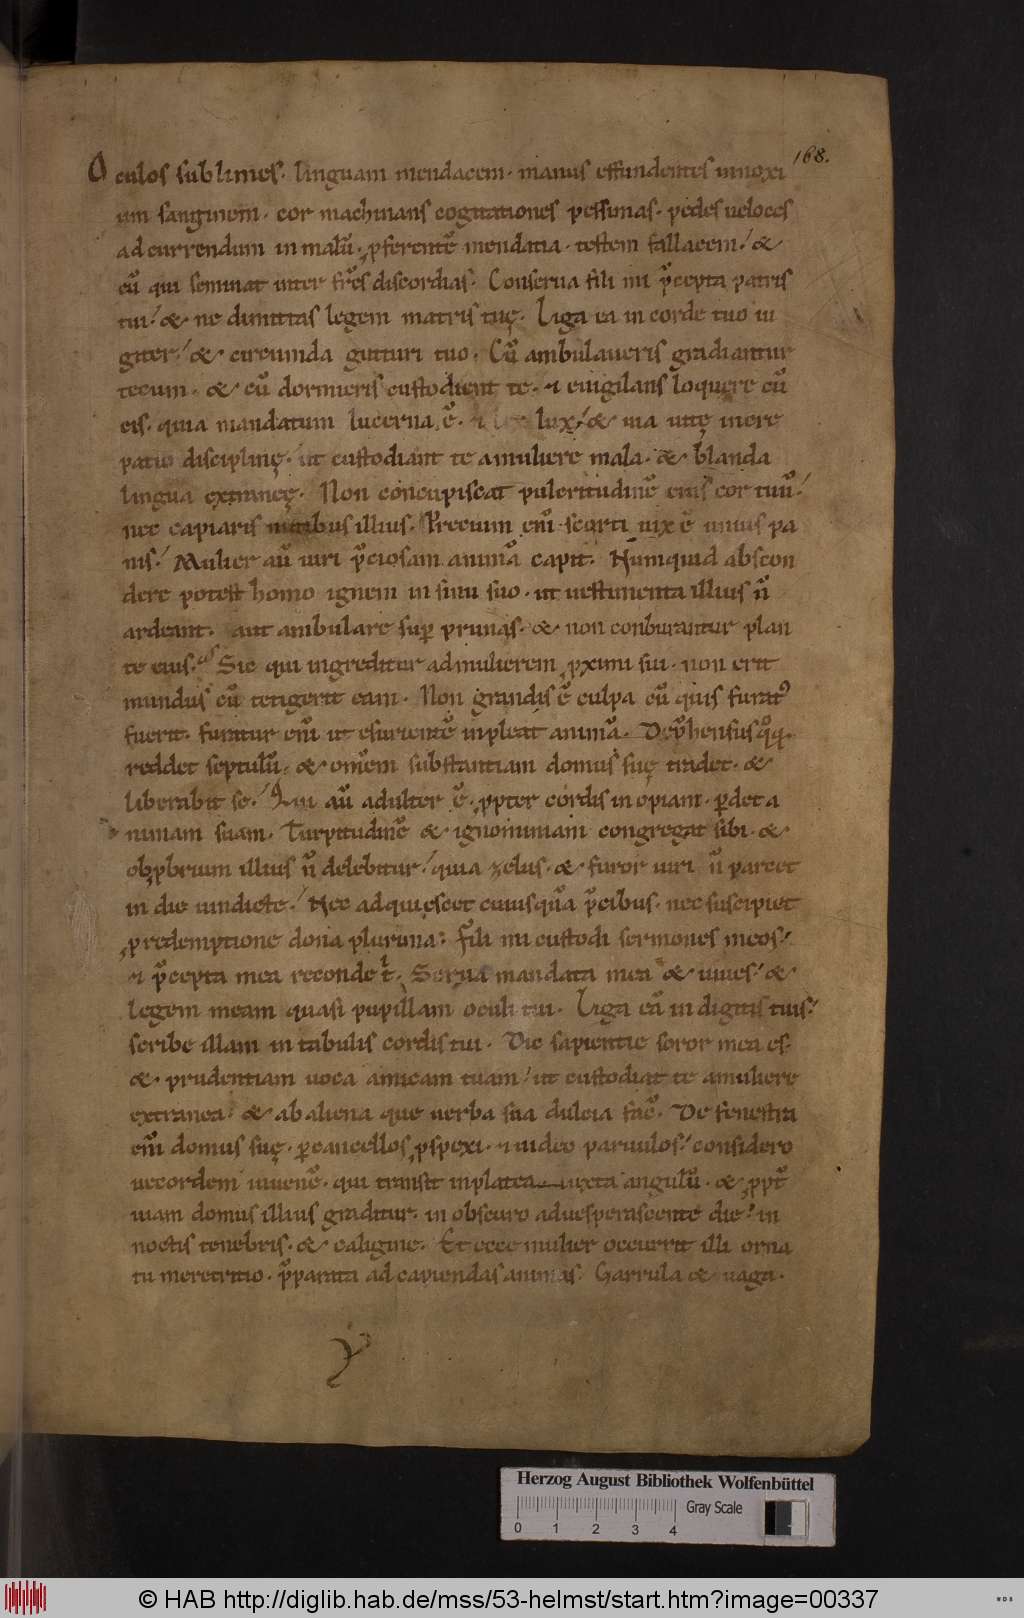 168.
Oculos sublimes. linguam mendacem. manus effundentes innoxi
um sanguinem. cor machinans cogitationes pessimas. pedes veloces
ad currendum in malū. ꝓferentē mendatia. testem fallacem. &
eū qui seminat inter fr̄es discordias. Conserva fili mi p̄cepta patris
tui. & ne dimittas legem matris tuę. Liga ea in corde tuo iu
giter. & circumda gutturi tuo. Cū ambulaveris gradiantur
tecum. & cū dormieris custodient te. ⁊ evigilans loquere cū
eis. quia mandatum lucerna ē. ⁊ lex lux. & via vitę incre
patio disciplinę. ut custodiant te a muliere mala. & blanda
lingua extraneę. Non concupiscat pulcritudinē eius cor tuū.
nec capiaris nutibus illius. Precium em̄ scorti vix ē unius pa
nis. Mulier aū viri p̄ciosam animā capit. Numquid abscon
dere potest homo ignem in sinu suo. ut vestimenta illius n̄
ardeant. aut ambulare suꝑ prunas. & non conburantur plan
te eius. Sic qui ingreditur ad mulierem ꝓximi sui. non erit
mundus cū tetigerit eam. Non grandis ē culpa cū quis furatꝰ
fuerit. furatur em̄ ut esurientē inpleat animā. Dep̄hensus qͦꝗ.
reddet septulū. & om̄em substantiam domus suę tradet. &
liberabit se. Qui aū adulter ē. ꝓpter cordis inopiam. ꝑdet a
nimam suam. Turpitudinē & ignominiam congregat sibi. &
obꝓbrium illius n̄ delebitur. quia zelus. & furor viri n̄ parcet
in die vindicte. Nec adquiescet cuiusqūa p̄cibus. nec suscipiet
ꝓ redemptione dona plurima. Fili mi custodi sermones meos.
⁊ p̄cepta mea reconde t̄. Serva mandata mea & vives. &
legem meam quasi pupillam oculi tui. Liga eā in digitis tuis.
scribe illam in tabulis cordis tui. Dic sapientie soror mea es.
& prudentiam voca amicam tuam. ut custodiat te a muliere
extranea. & ab aliena que verba sua dulcia facē. De fenestra
em̄ domus suę. ꝑ cancellos ꝓspexi. ⁊ video parvulos. considero
vecordem iuvenē. qui transit in platea iuxta angulū. & ꝓpt̄
viam domus illius graditur. in obscuro advesperascente die. in
noctis tenebris. & caligine. Et ecce mulier occurrit illi orna
tu meretritio. p̄parata ad capiendas animas. Garrula & vaga.
Herzog August Bibliothek Wolfenbüttel
Gray Scale
0 1 2 3 4
© HAB http://diglib.hab.de/mss/53-helmst/start.htm?image=00337